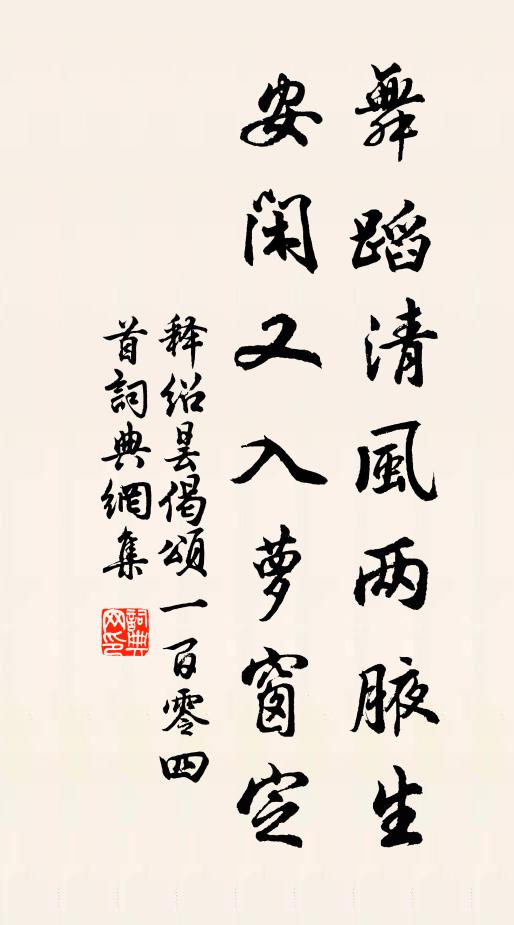 舞蹈清風两腋生
安闲又入萝窗定
释绍昙偈頌一百零四
首詞典網集
詞典
网印